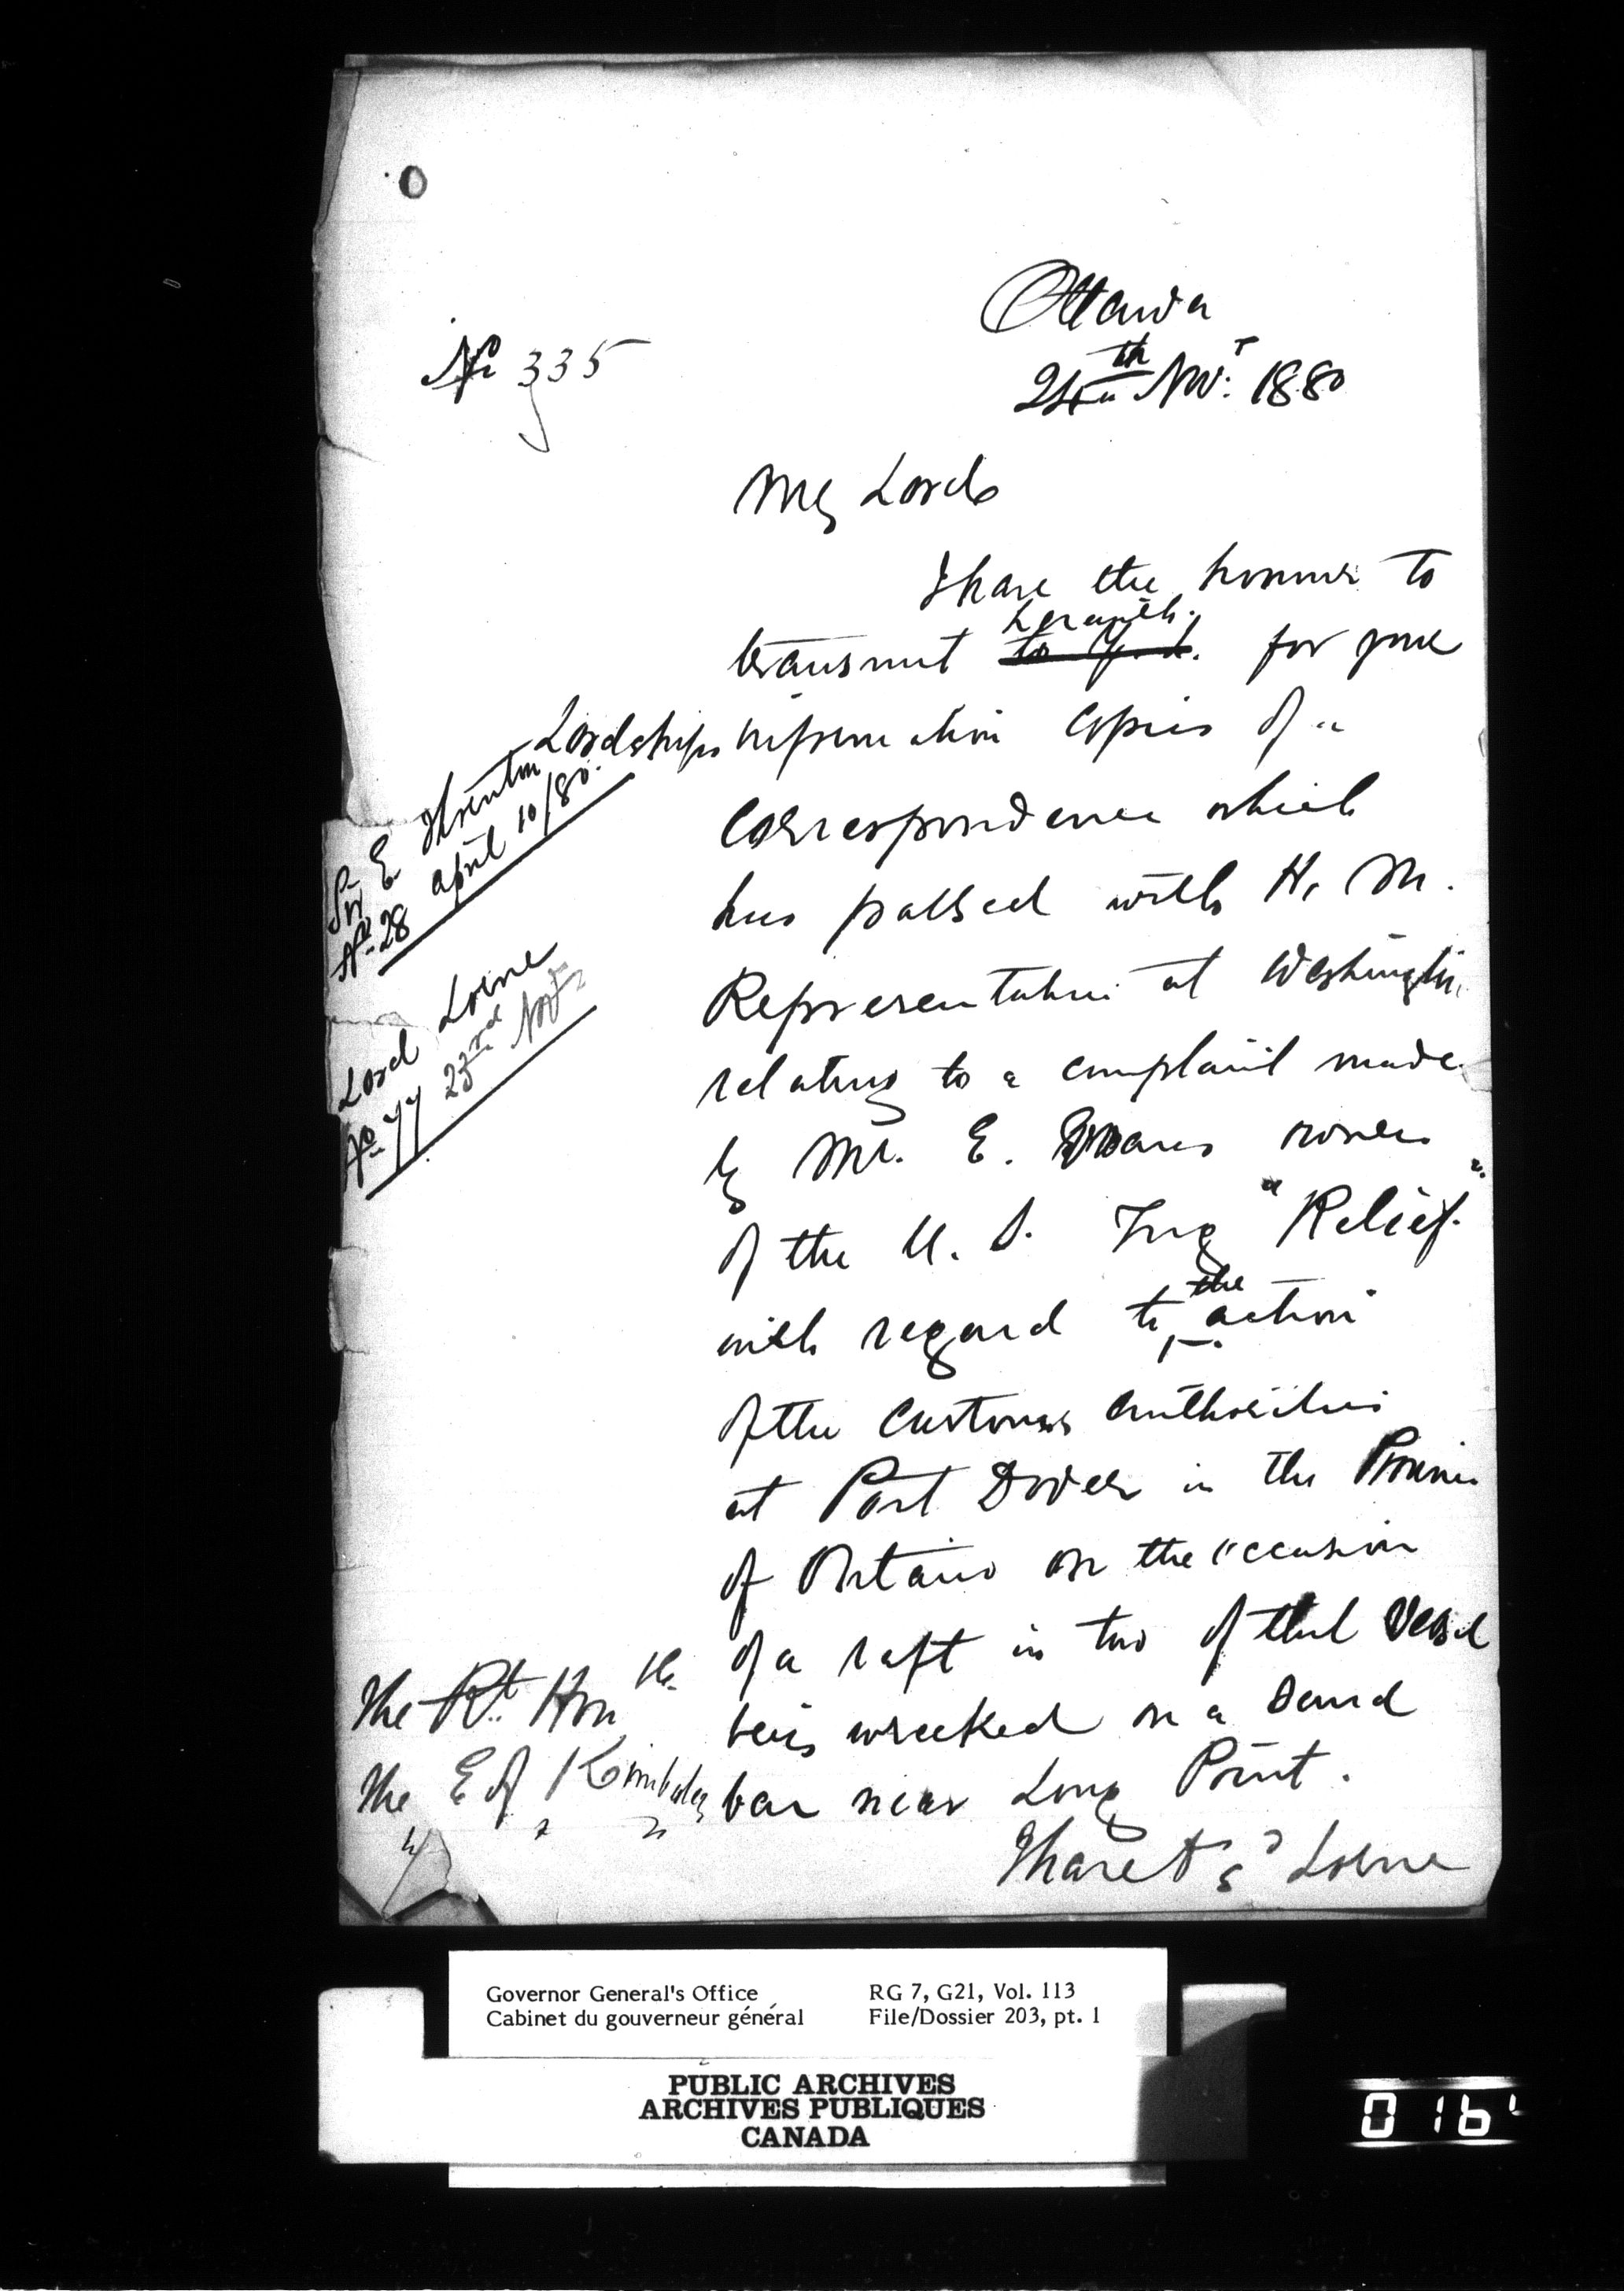 Ottawa
No 335
24th Nov: 1880
My Lord
I have the honour to
herewith
transmit to Y. L. for your
Lordships information copies of a
Sir E Thornton
No 28 April 10/80.
correspondence which
has passed with H. M.
Lord Lorne
No 77 23rd Novr
Representative at Washington
relating to a complaint made
by Mr. E. owner
of the U. S. Tug "Relief"
with regard to the action
of the Customs authorities
at Port Dover in the Province
of Ontario on the occasion
of a raft in tow of that vessel
being wrecked on a Sand
bar near Long Point.
The Rt. Honble
The E of Kimberley
I have &c Lorne
Governor General's Office RG 7, G21, Vol. 113
Cabinet du gouverneur général File/Dossier 203, pt. 1
PUBLIC ARCHIVES
ARCHIVES PUBLIQUES
CANADA